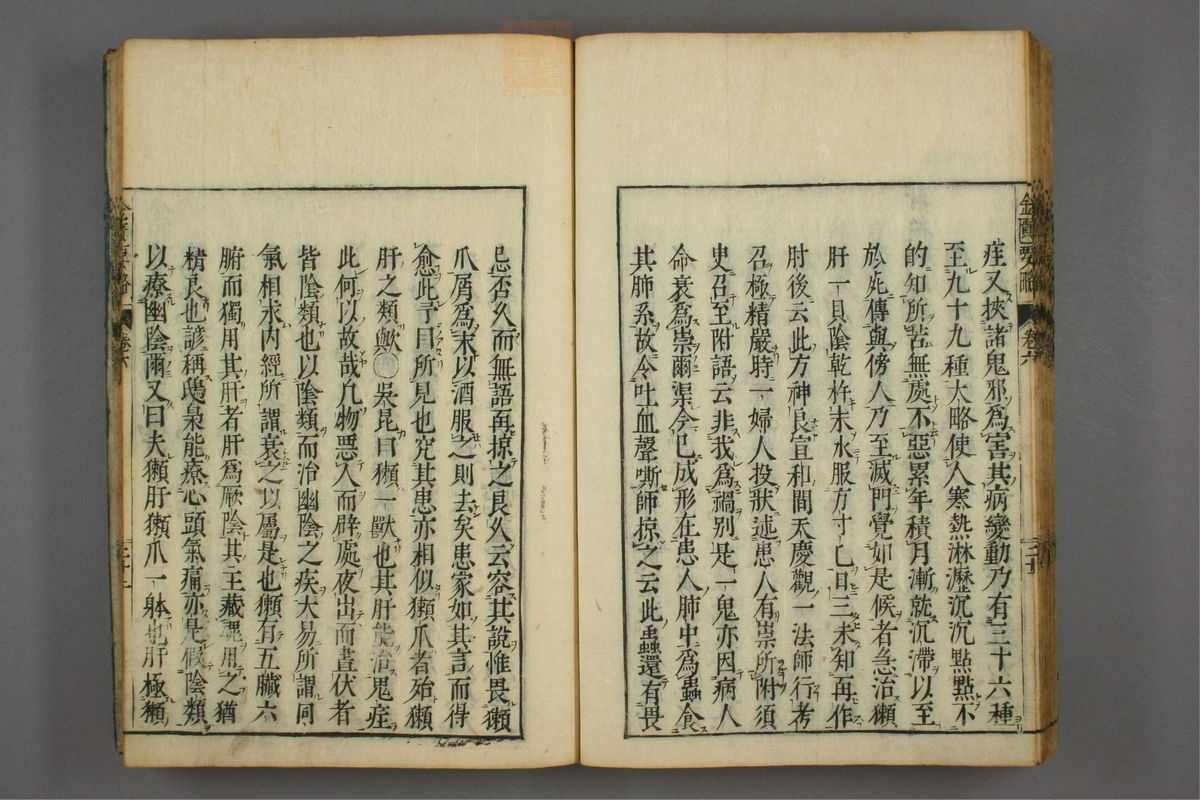 金匱要略
卷六
疰又挾諸鬼邪爲害其病變動乃有三十六種
至九十九種大略使人寒熱淋瀝沉沉點點不
的知所苦無處不惡累年積月漸就沉滯以至
於死傳與傍人乃至滅門覺如是候者急治獺
肝一具陰乾杵末水服方寸匕日三未知再作
肘後云此方神良宣和間天慶觀一法師行考
召極精嚴時一婦人投狀述患人有祟所附須
史召至附語云非我爲禍別是一鬼亦因病人
命衰爲祟爾渠今已成形在患人肺中爲蟲食
其肺系故令吐血聲嘶師掠之云此蟲還有畏
忌否久而無語再掠之良久云容其說惟畏獺
爪屑爲末以酒服之則去矣患家如其言而得
愈此予曰所見也究其患亦相似獺爪者殆獺
肝之類歟○吳昆曰獺一獸也其肝能治鬼疰
此何以故哉凡物惡人而辟處夜出而晝伏者
皆陰類也以陰類而治幽陰之疾大易所謂同
氣相求內經所謂衰之以屬是也獺有五臟六
腑而獨用其肝者肝爲厥陰其主藏魂用之猶
精良也諺稱鴟梟能療心頭氣痛亦是假陰類
以療幽陰爾又曰夫獺肝獺爪一躰也肝極獺
卷六